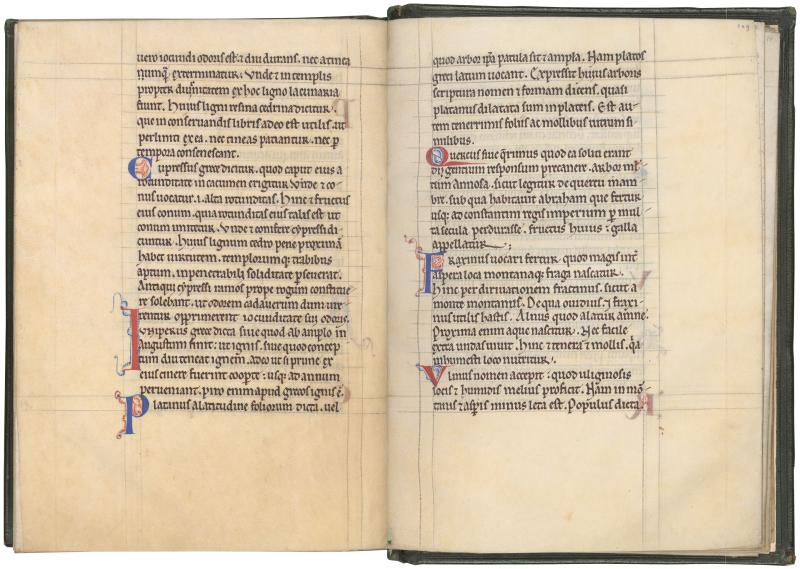 uero iocundi odoris est & diu durans. nec a tinea
numq̄ exterminatur. Vnde & in templis
propter diuturnitatem ex hoc ligno lacunaria
fiunt. Huius ligni resina cedria dicitur.
que in conseruandis libris adeo est utilis. ut
perliniti ex ea. nec tineas patiantur. nec
tempora consenescant.
Cupressus grece dicitur. quod caput eius a
rotunditate in cacumen erigitur. Vnde & co
nus uocatur. i. alta rotunditas. Hinc & fructus
eius conum. quia rotunditas eius talis est ut
conum imitetur. Vnde & conifere cypressi di
cuntur. Huius lignum cedro pene proximā
habet uirtutem. templorumq; trabibus
aptum. inpenetrabili soliditate
Antiqui cypressi ramos prope rogum constitue
re solebant. ut odorem cadauerum dum ure
rentur opprimerent iocunditate sui odoris.
Iuniperus grece dicta siue quod ab amplo in
angustum finit. ut ignis. siue quod concep
tum diu teneat ignem. adeo ut si prune ex
eius cinere fuerint cooperte. usq; ad annum
perueniant. piro enim apud grecos ignis ē.
Platanus a latitudine foliorum dicta. uel
quod arbor ipa patula sit & ampla. Nam platos
greci latum uocant. Expressit huius arboris
scriptura nomen & formam dicens. quasi
platanus dilatata sum in plateis. Est au
tem tenerrimis foliis ac mollibus uitium si
milibus.
Quercus siue q̄rimus quod ea soliti erant
dij gentium responsum precanere. arbor
tum annosa. sicut legitur de quercu mam
bre. sub qua habitauit abraham que fertur
usq; ad constantini regis imperium p mul
ta secula perdurasse. fructus huius galla
appellatur.
Fraxinus uocari fertur. quod magis in
aspera loca montanaq; fraga nascatur.
hinc per diriuationem fraxinus. sicut a
monte montanus. De qua ouidius & fraxi
nus utilis hastis. Alnus quod alatur amne.
Proxima enim aque nascitur. Nec facile
extra undas uiuit. hinc & tenera & mollis. q̄a
in humesti loco nutritur.
Vlmus nomen accepit. quod uliginosis
locis & humidis melius proficit. Nam in mō
tanis & aspris minus leta est. Populus dicta.